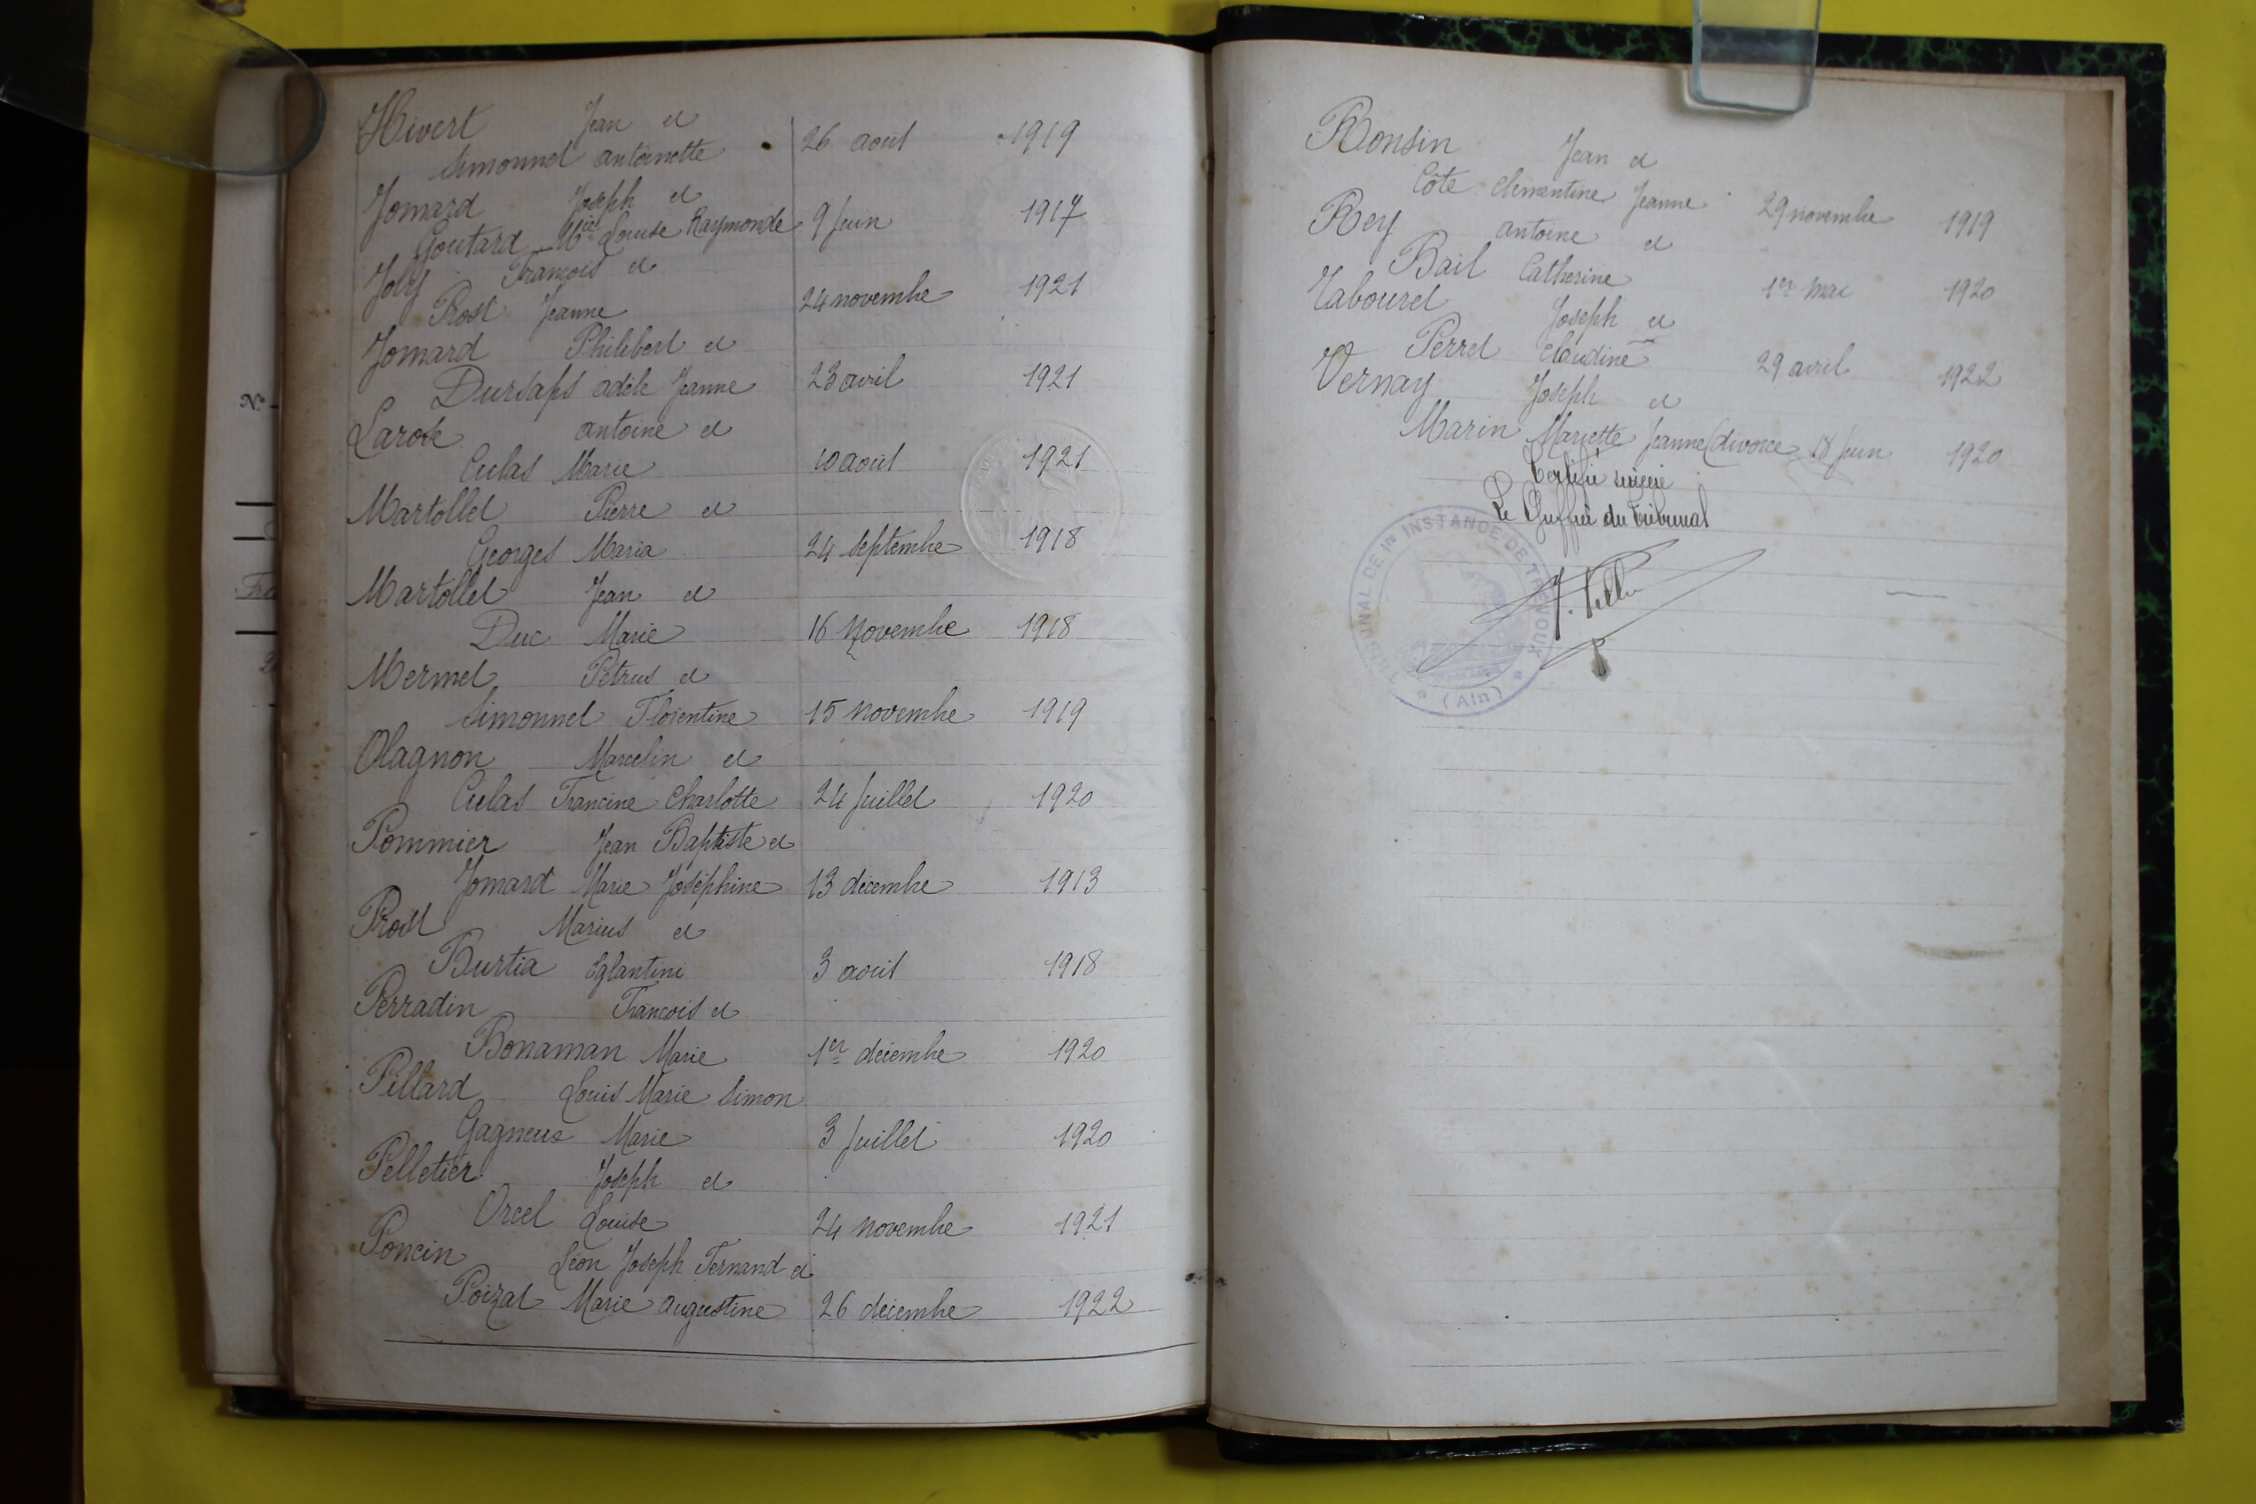 Hivert Jean et
Simonnet antoinette 26 août 1919
Jomard Joseph et
Goutard Louise Raymonde 9 Juin 1917
Joly François et
Prost Jeanne 24 novembre 1921
Jomard Philibert et
Adèle Jeanne 23 avril 1921
antoine et
Culas Marie 10 août 1921
Martollet Pierre et
Georges Maria 24 septembre 1918
Martollet Jean et
Duc Marie 16 Novembre 1918
Mermet Pétrus et
Simonnet Florentine 15 novembre 1919
Olagnon Marcelin et
Culas Francine Charlotte 24 Juillet 1920
Pommier Jean Baptiste et
Jomard Marie Joséphine 13 décembre 1913
Prost Marius et
Burtia Eglantine 3 août 1918
Perradin François et
Bonaman Marie 1er décembre 1920
Pillard Louis Marie Simon
Marie 3 Juillet 1920
Pelletier Joseph et
Orcel Louise 24 novembre 1921
Poncin Léon Joseph Fernand et
Poizat Marie augustine 26 décembre 1922
Ronsin Jean et
Côte Clémentine Jeanne 29 novembre 1919
Rey antoine et
Bail Catherine 1er Mai 1920
Tabouret Joseph et
Perret Claudine 29 avril 1922
Vernay Joseph et
Marin Mariette Jeanne (divorce 18 Juin 1920
Certifié sincère
Le Greffier du Tribunal
TRIBUNAL DE 1re INSTANCE DE TRÉVOUX
(Ain)